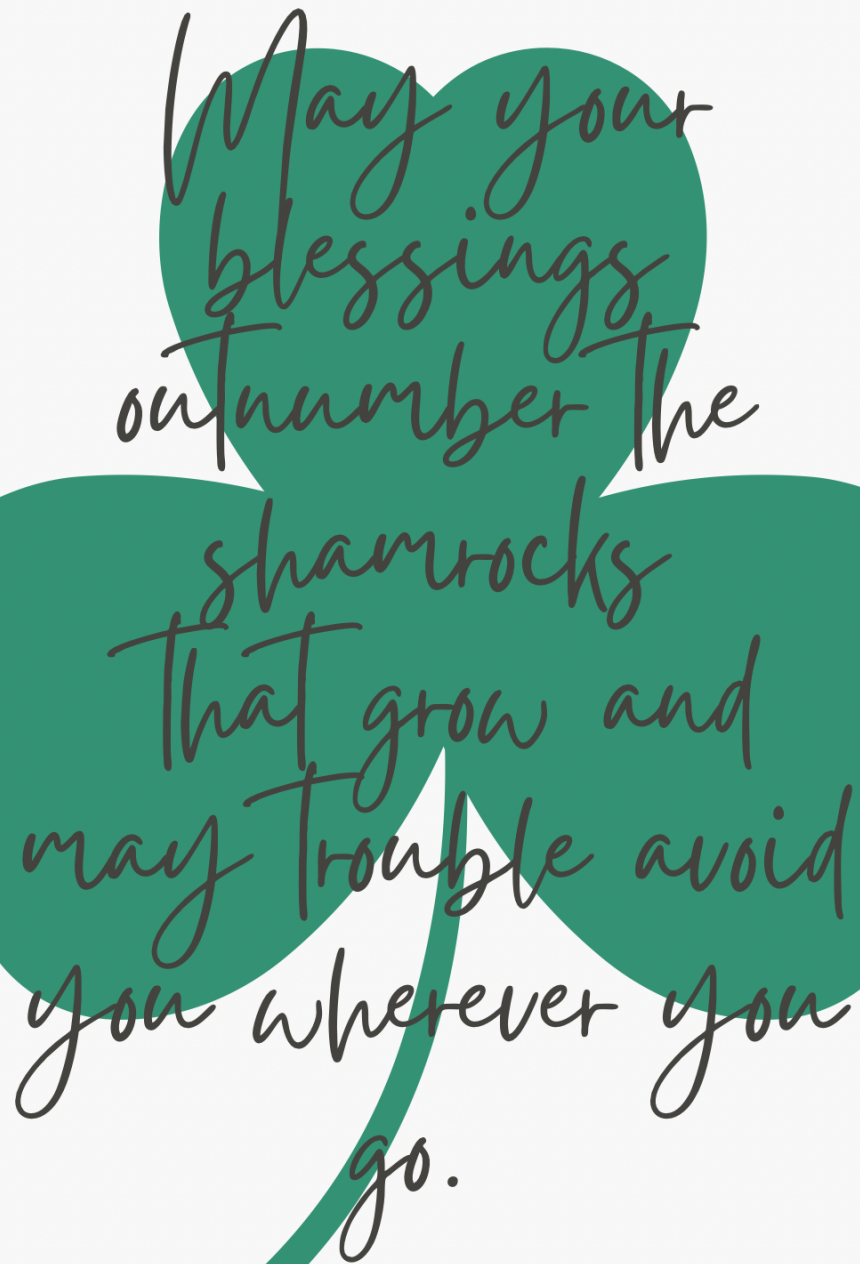 May your
blessings
outnumber the
shamrocks
that grow and
may trouble avoid
you wherever you
go.